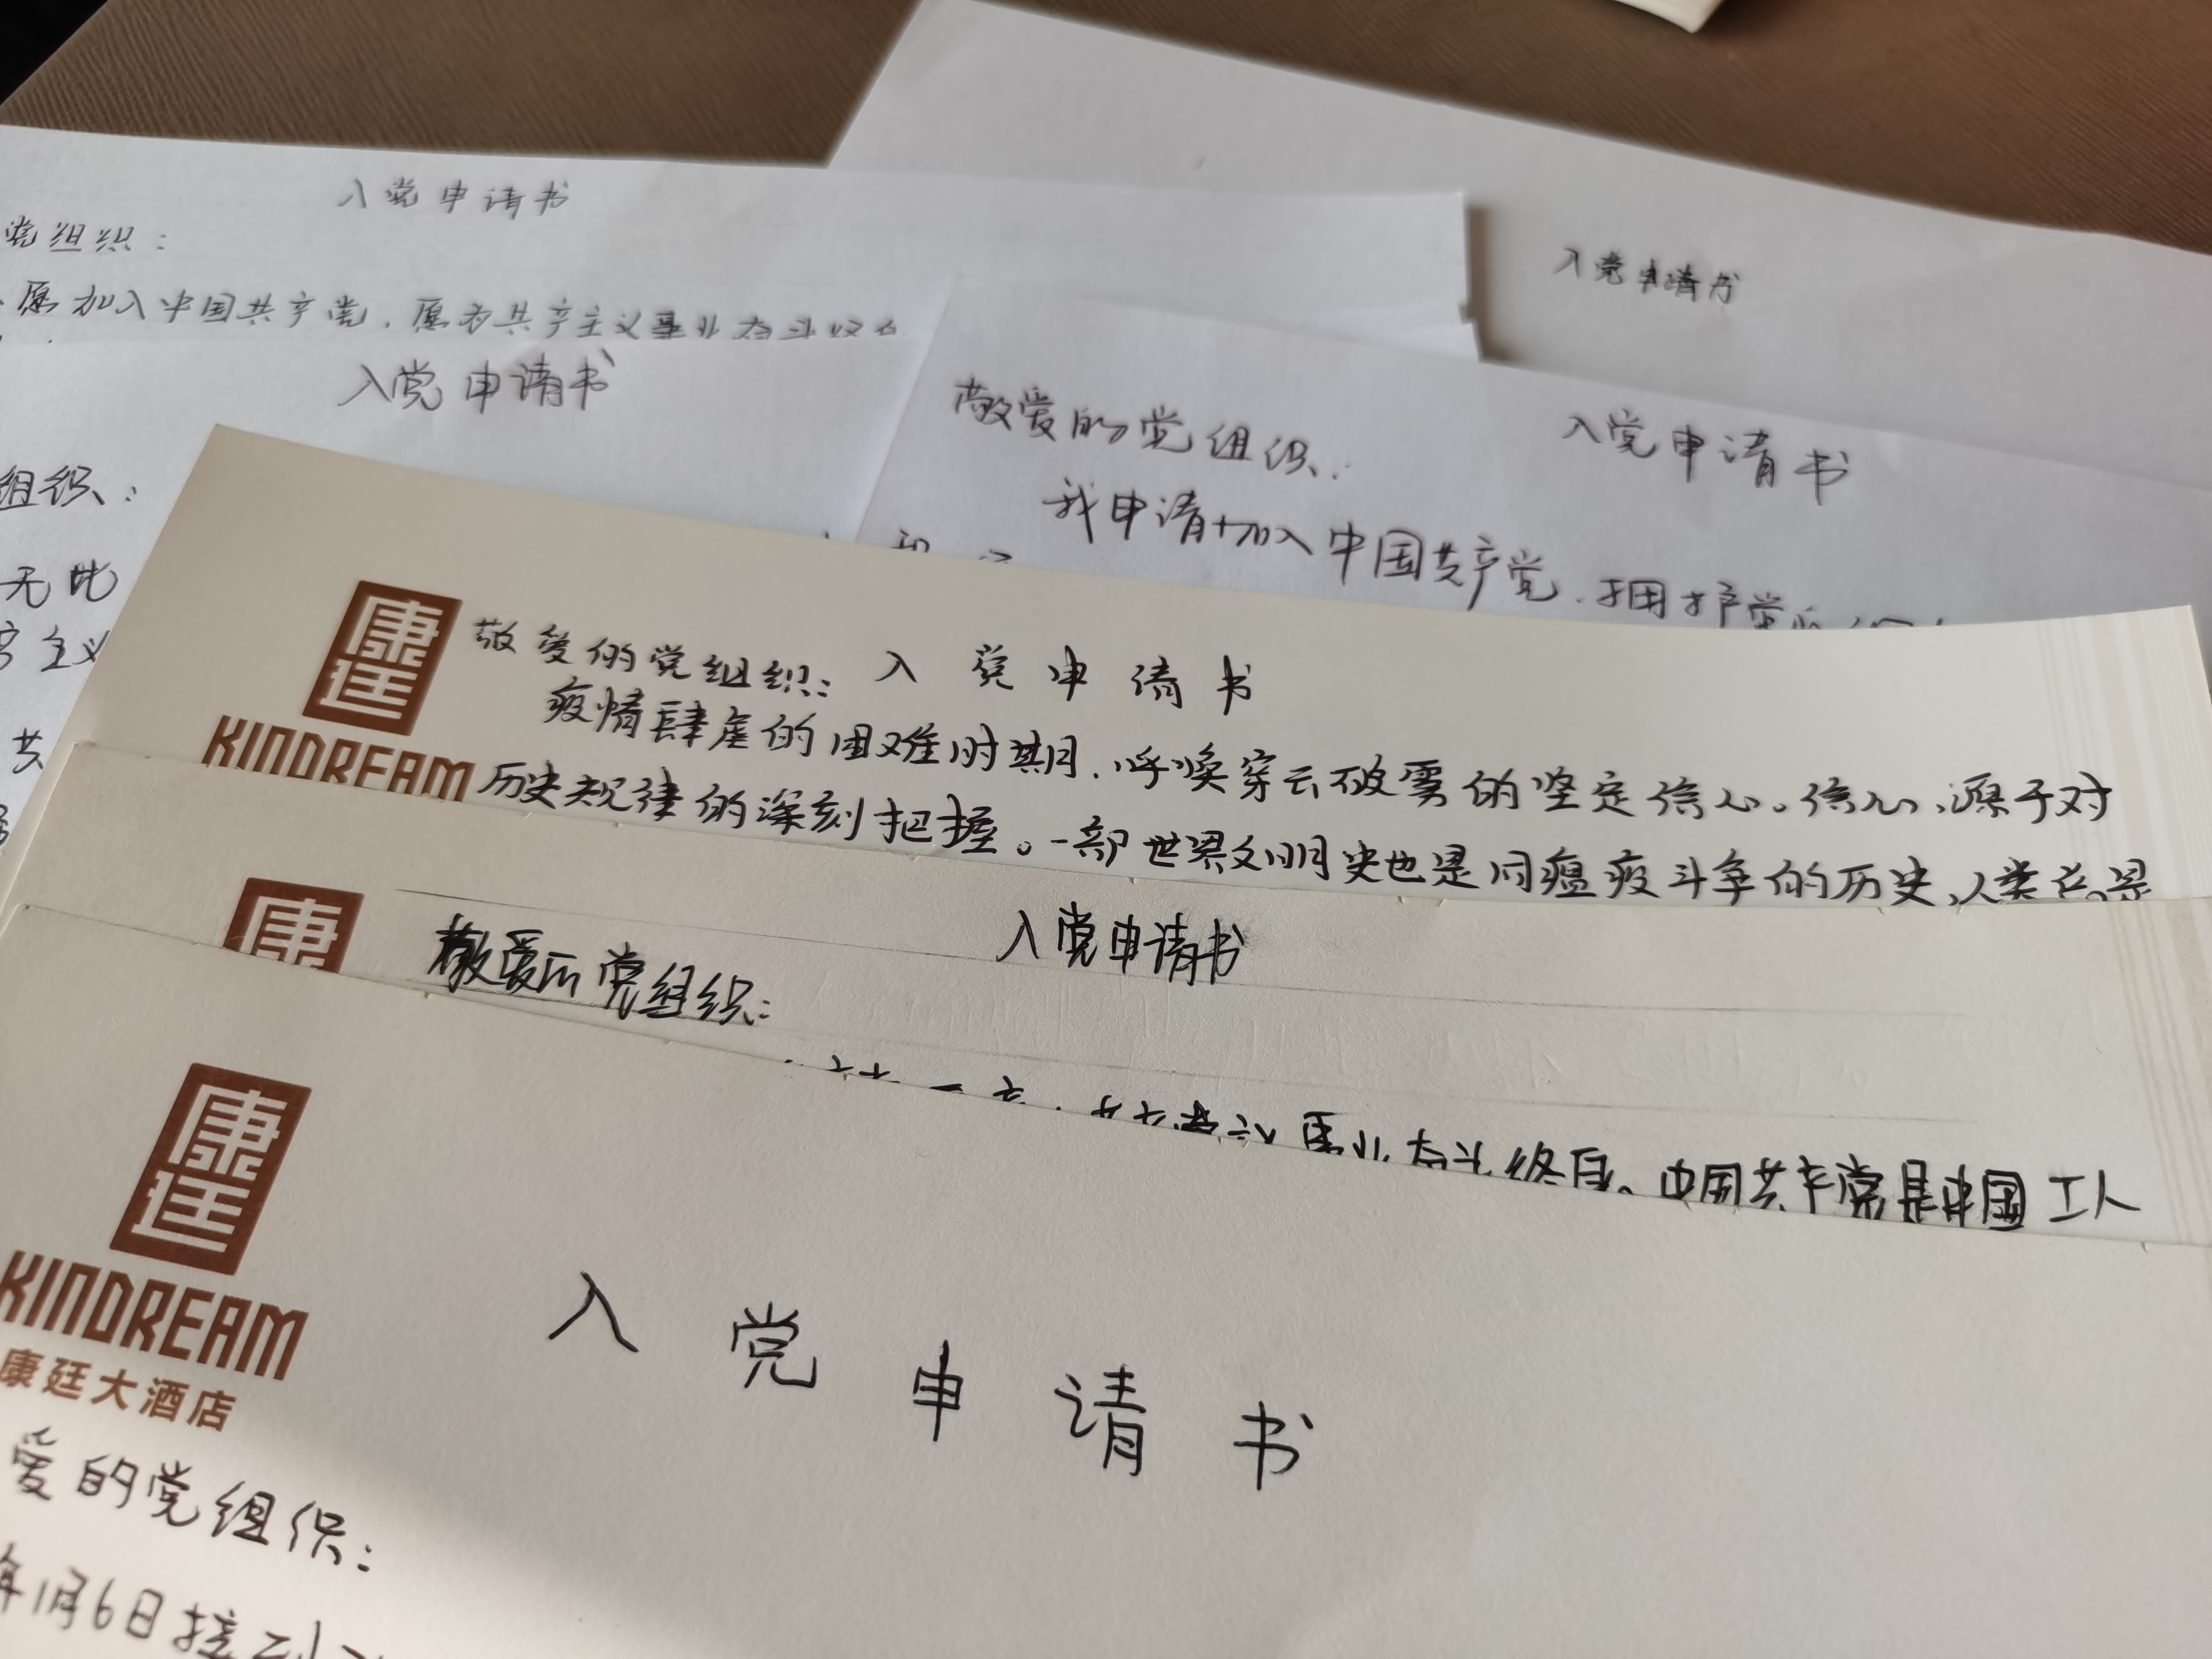 入党申请书
党组织：
愿加入中国共产党，愿为共产主义事业奋斗终
入党申请书
入党申请书
组织：
无比
主义
共
入党申请书
敬爱的党组织：
我申请加入中国共产党，拥护党
康廷
KINDREAM
入党申请书
敬爱的党组织：
疫情肆虐的困难时期，呼唤穿云破雾的坚定信心。信心，源于对
历史规律的深刻把握。一部世界文明史也是同瘟疫斗争的历史，人类总是
康
入党申请书
敬爱的党组织：
事业奋斗终身。中国共产党是中国工人
康廷
KINDREAM
康廷大酒店
入党申请书
爱的党组织：
年1月6日接到